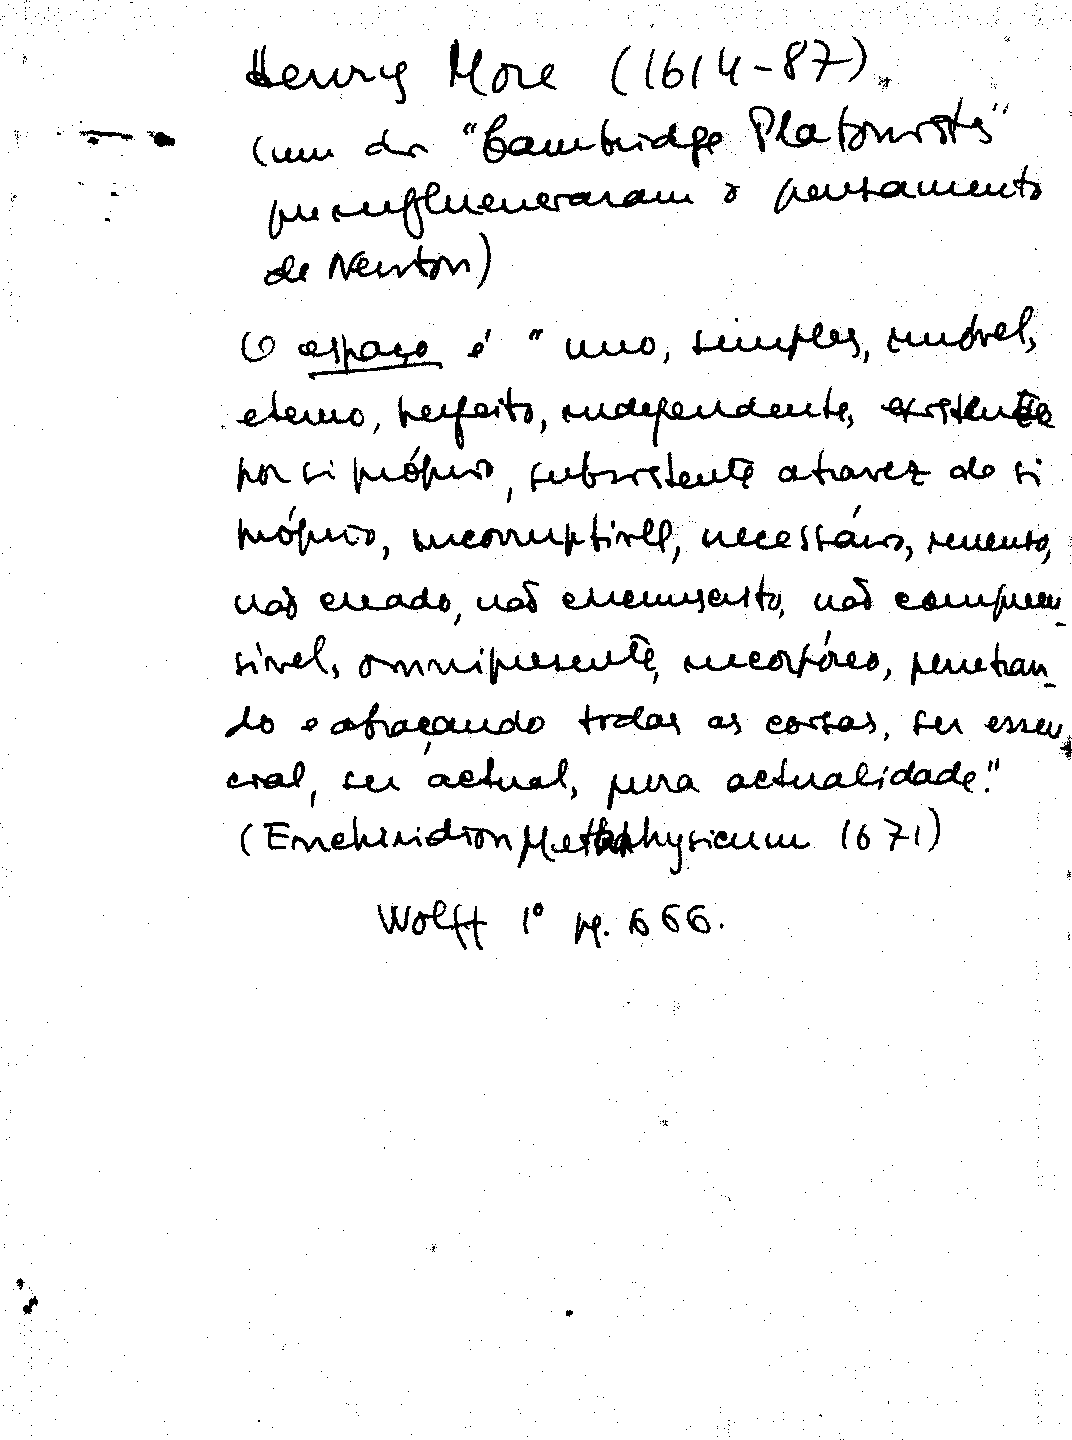 Henry More (1614-87).
(um dos "Cambridge Platonists"
que influenciaram o pensamento
de Newton)
O espaço é "uno, simples, imóvel,
eterno, perfeito, independente, existente
por si próprio, subsistente atravez de si
próprio, incorruptivel, necessário, imenso,
não creado, não circunscrito, não compreen-
sivel, omnipresente, incorpóreo, penetran-
do e abraçando todas as coisas, ser essen
cial, ser actual, pura actualidade."
(Enchiridion Metaphysicum 1671)
Wolff 1º pg. 666.